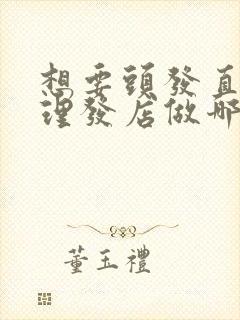 想要頭發直
理發店做哪
董玉禮